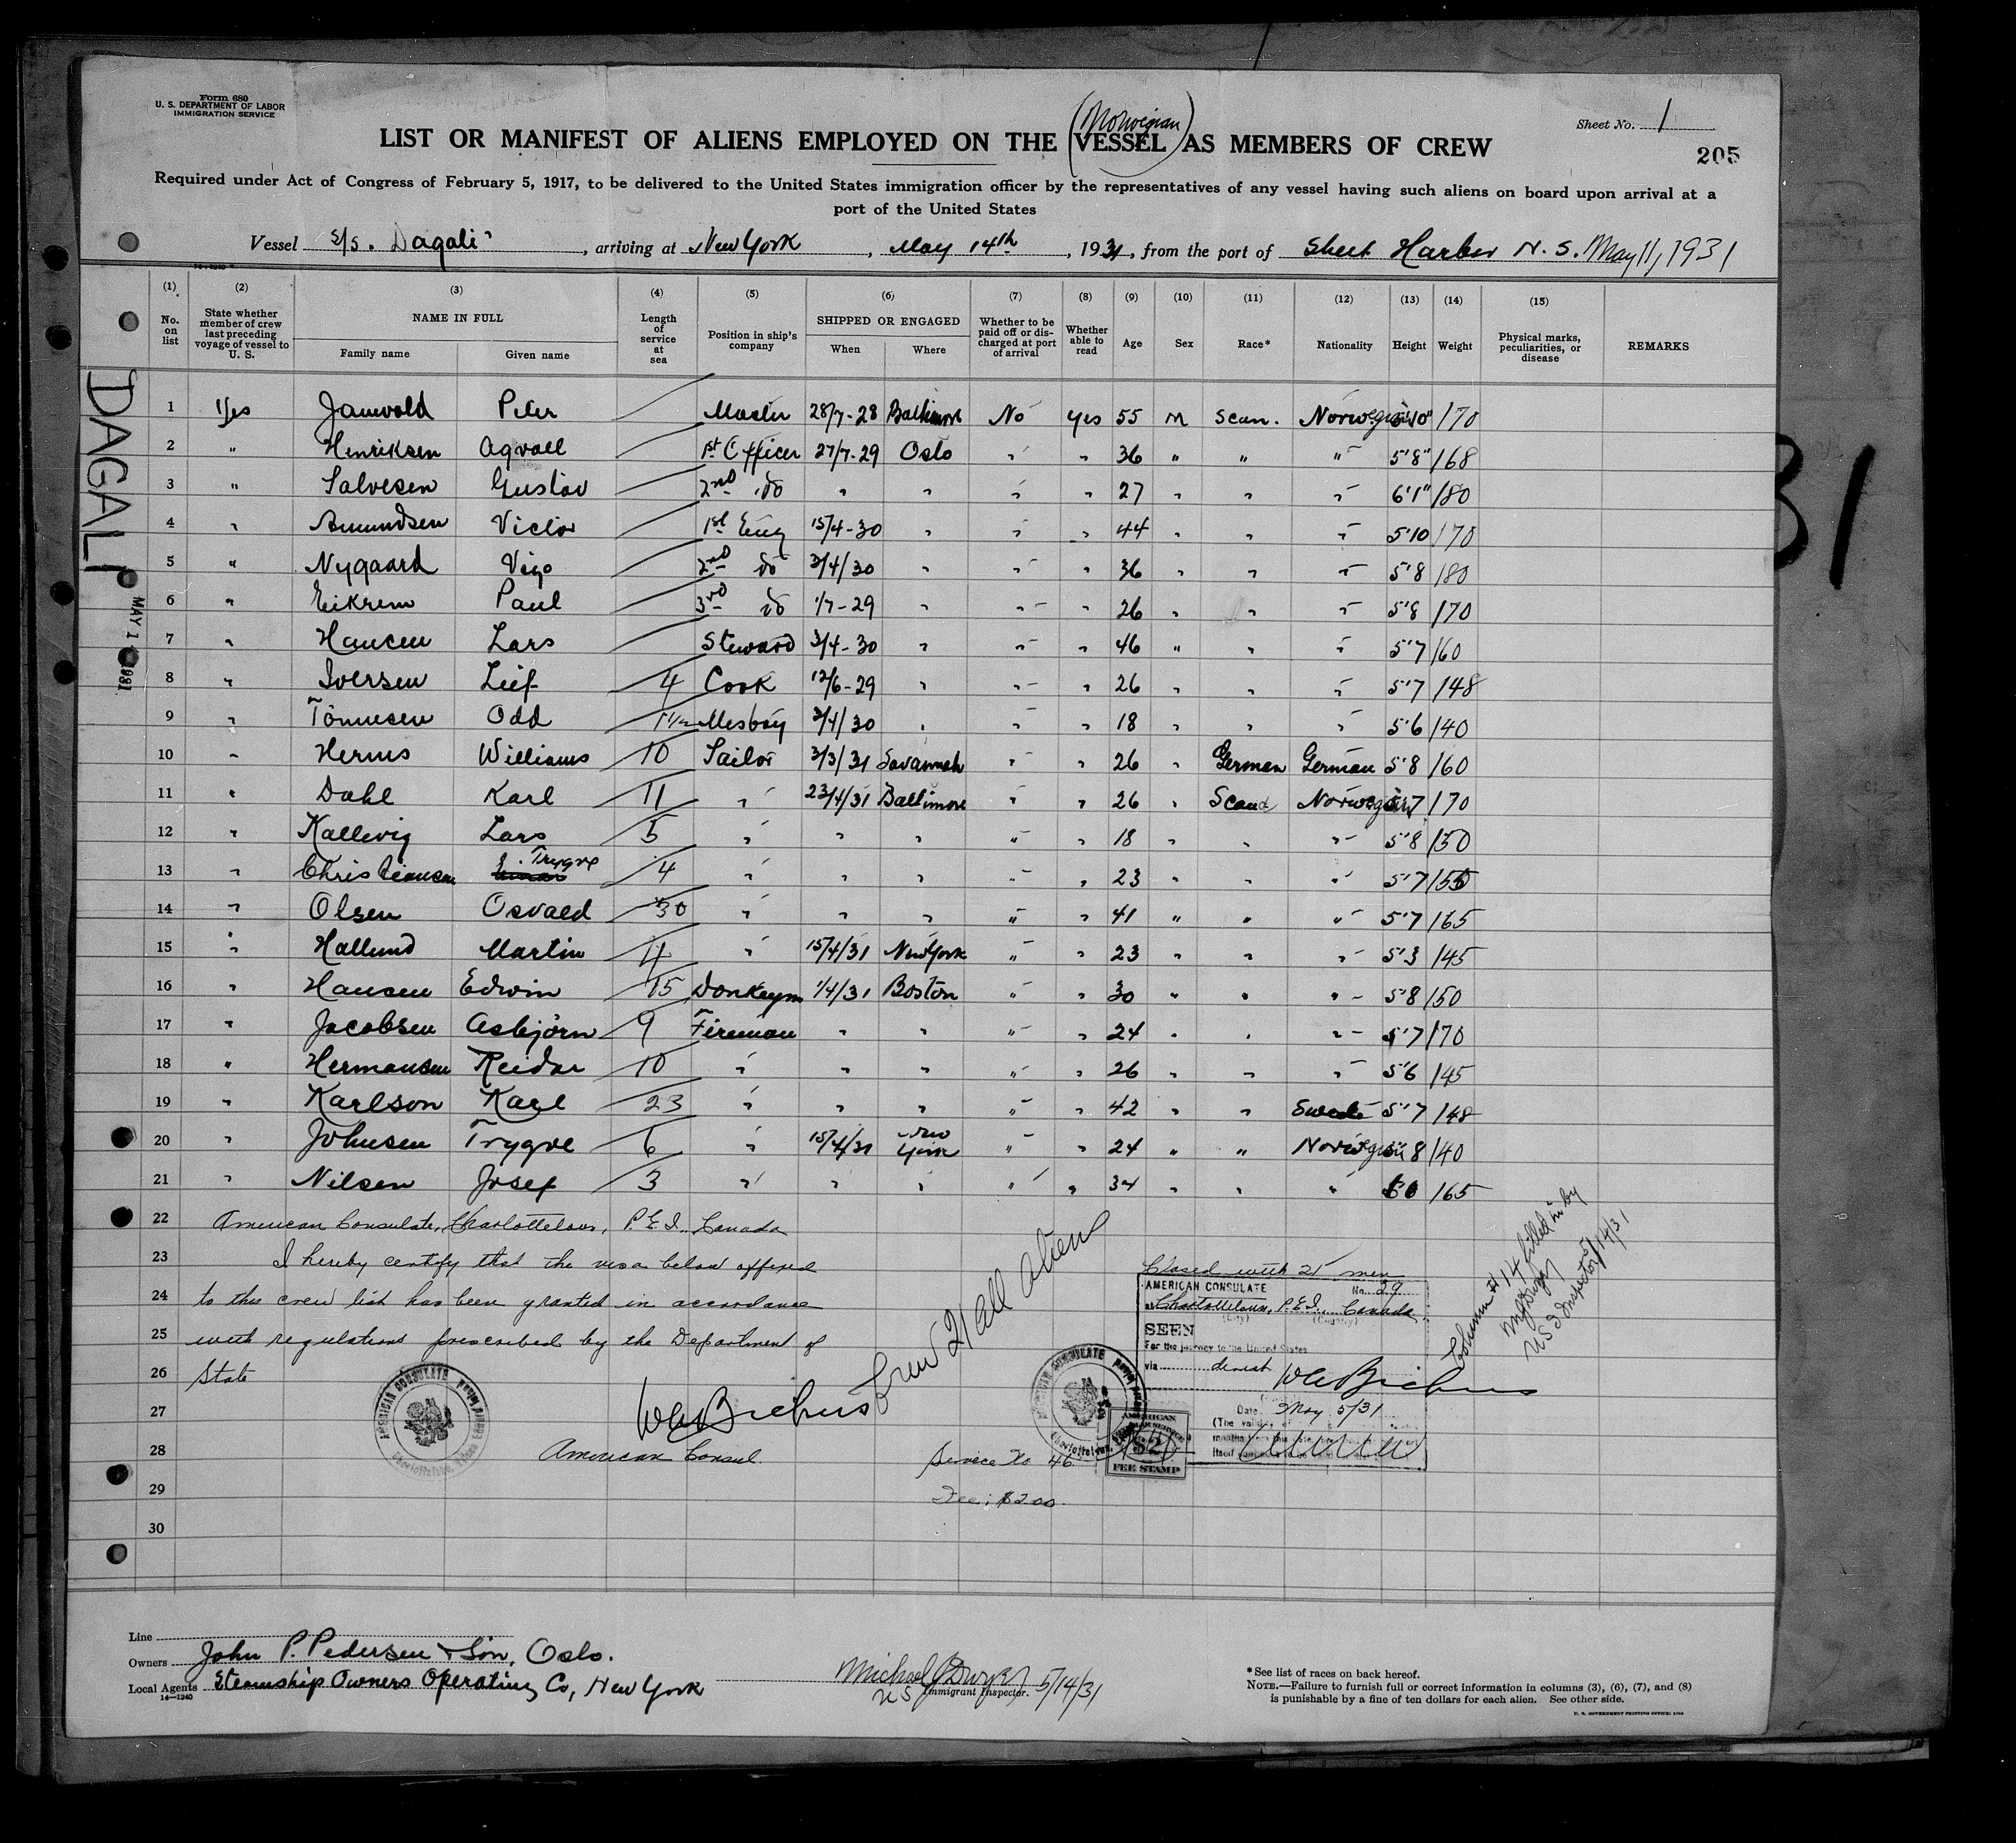 Form 680
U. S. DEPARTMENT OF LABOR
IMMIGRATION SERVICE
Sheet No. 1
(Norwegian)
LIST OR MANIFEST OF ALIENS EMPLOYED ON THE VESSEL AS MEMBERS OF CREW
205
Required under Act of Congress of February 5, 1917, to be delivered to the United States immigration officer by the representatives of any vessel having such aliens on board upon arrival at a
port of the United States
Vessel S/S. Dagali, arriving at New York, May 14th, 1931, from the port of Sheet Harbor N. S. May 11, 1931
(1) (2) (3) (4) (5) (6) (7) (8) (9) (10) (11) (12) (13) (14) (15)
No. on list State whether member of crew last preceding voyage of vessel to U. S. NAME IN FULL Family name Given name Length of service at sea Position in ship's company SHIPPED OR ENGAGED When Where Whether to be paid off or discharged at port of arrival Whether able to read Age Sex Race* Nationality Height Weight Physical marks, peculiarities, or disease REMARKS
1 Yes Peter Master 28/7-28 Baltimore No Yes 55 M Scan. Norwegian 5'10" 170
2 " Henriksen 1st Officer 27/7-29 Oslo " " 36 " " " 5'8" 168
3 " Salvesen Gustav 2nd do " " " " 27 " " " 6'1" 180
4 " Amundsen Victor 1st Eng 15/4-30 " " " 44 " " " 5'10 170
5 " Nygaard Vigo 2nd do 3/4/30 " " " 36 " " " 5'8 180
6 " Eikrem Paul 3rd do 1/7-29 " " " 26 " " " 5'8 170
7 " Hansen Lars Steward 3/4-30 " " " 46 " " " 5'7 160
8 " Iversen Leif 4 Cook 12/6-29 " " " 26 " " " 5'7 148
9 " Tönnesen Odd Mesboy 3/4/30 " " " 18 " " " 5'6 140
10 " Herms Williams 10 Sailor 3/3/31 Savannah " " 26 " German German 5'8 160
11 " Dahl Karl 11 " 23/4/31 Baltimore " " 26 " Scand Norwegian 5'7 170
12 " Kallevig Lars 5 " " " " " 18 " " " 5'8 150
13 " Christiansen E. Trygve 4 " " " " " 23 " " " 5'7 155
14 " Olsen Osvald 30 " " " " " 41 " " " 5'7 165
15 " Hallund Martin 4 " 15/4/31 New York " " 23 " " " 5'3 145
16 " Hansen Edwin 15 Donkeym 1/4/31 Boston " " 30 " " " 5'8 150
17 " Jacobsen Asbjörn 9 Fireman " " " " 24 " " " 5'7 170
18 " Hermansen Reidar 10 " " " " " 26 " " " 5'6 145
19 " Karlson Karl 23 " " " " " 42 " " Swede 5'7 148
20 " Johnsen Trygve 6 " 15/4/31 New York " " 24 " " Norwegian 5'8 140
21 " Nilsen Josef 3 " " " " " 34 " " " 165
22 American Consulate, Charlottetown, P.E.I., Canada
23 I hereby certify that the visa below affixed
24 to this crew list has been granted in accordance
25 with regulations prescribed by the Department of
26 State
27
28 American Consul.
29
30
Crew 21 all aliens
Service No. 46
Fee: $2.00
Closed with 21 men
AMERICAN CONSULATE No. 29
at Charlottetown, P.E.I., Canada
(City) (Country)
SEEN
For the journey to the United States
via direct
Date May 5/31
AMERICAN CONSULATE
AMERICAN CONSULATE
AMERICAN
$2
FEE STAMP
Column # 14 filled in by
U S Inspector 5/14/31
DAGALI
MAY 1 1931
31
Line
Owners John P. Pedersen & Son, Oslo.
Local Agents Steamship Owners Operating Co, New York
14—1240
Michael J Dwyer 5/14/31
US Immigrant Inspector.
*See list of races on back hereof.
NOTE.—Failure to furnish full or correct information in columns (3), (6), (7), and (8)
is punishable by a fine of ten dollars for each alien. See other side.
U. S. GOVERNMENT PRINTING OFFICE